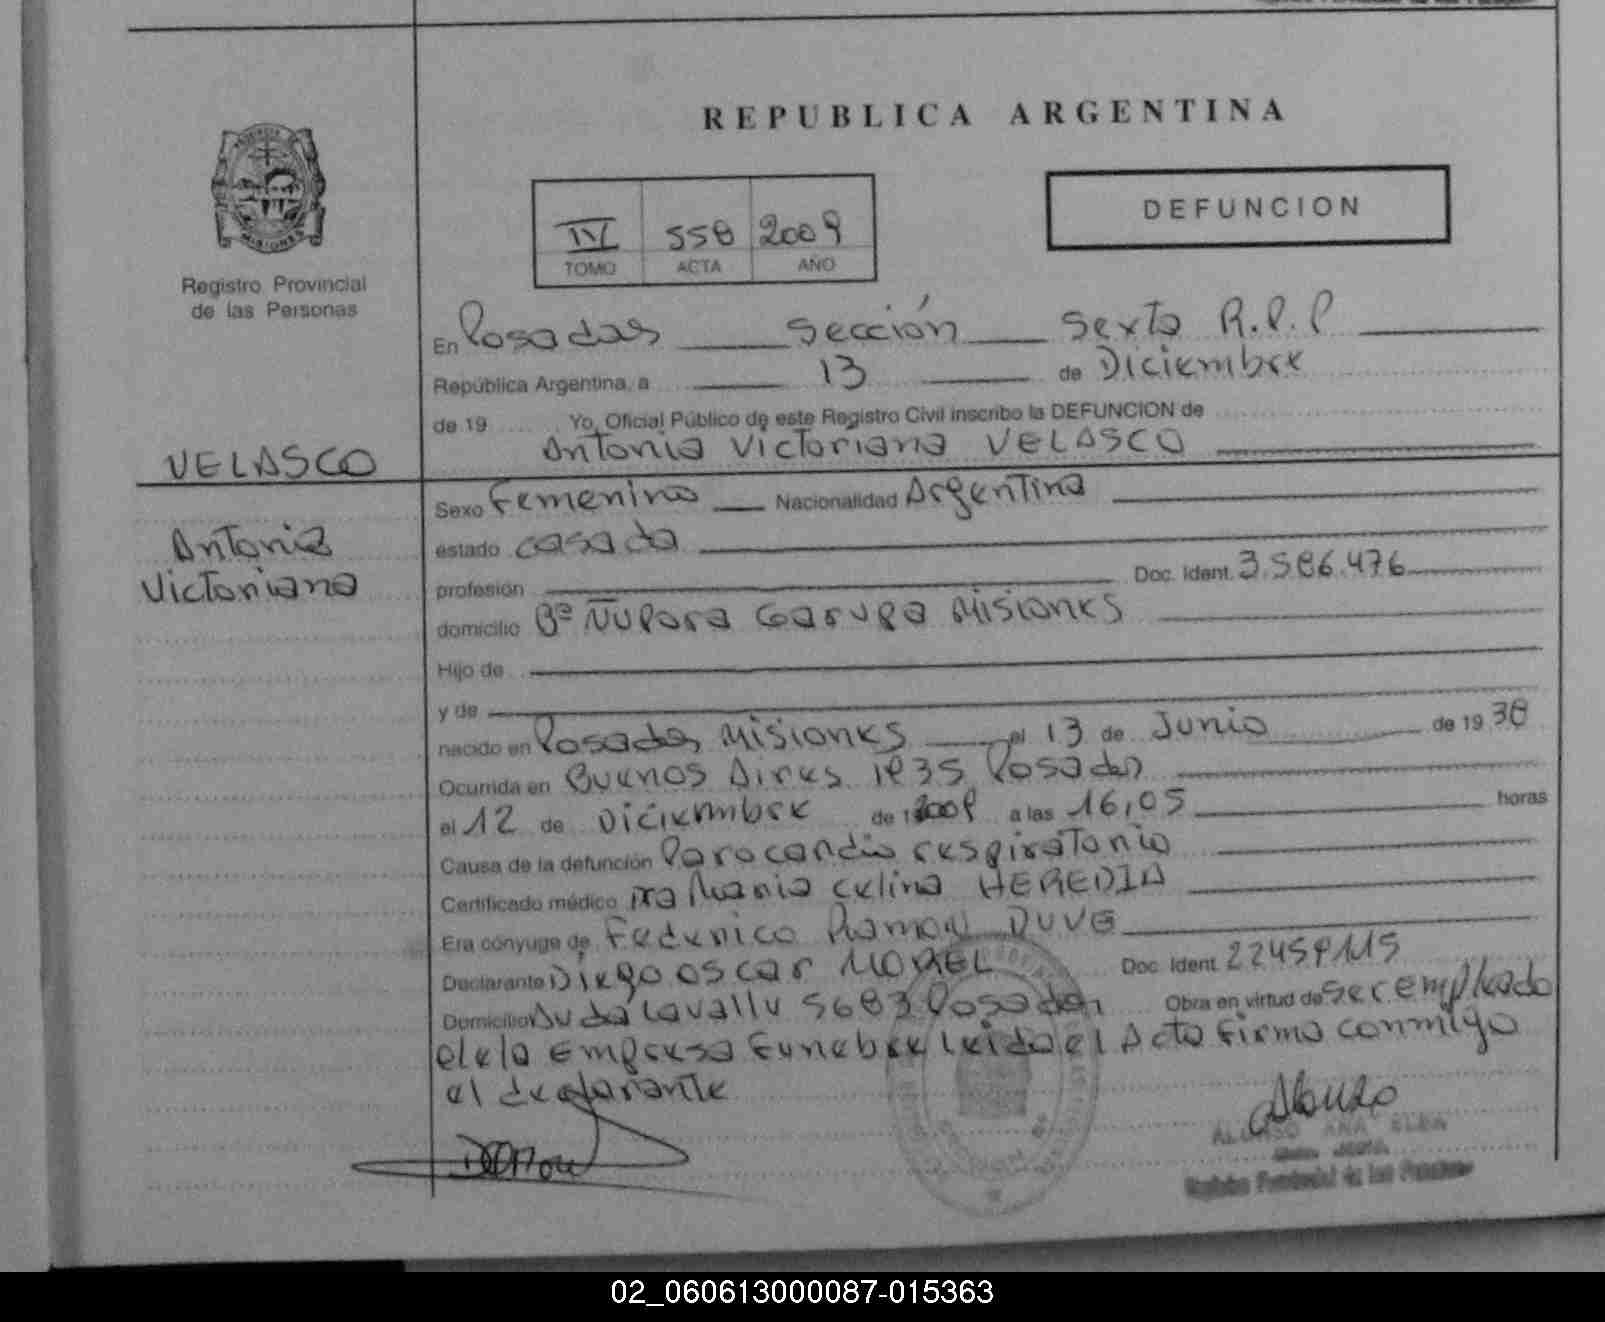 REPUBLICA ARGENTINA
DEFUNCION
IV 558 2009
TOMO ACTA AÑO
MISIONES
Registro Provincial
de las Personas
En Posadas Sección Sexta R.P.P
República Argentina, a 13 de Diciembre
de 19 Yo, Oficial Público de este Registro Civil inscribo la DEFUNCION de
VELASCO
Antonia Victoriana VELASCO
Antonia
Victoriana
Sexo Femenino Nacionalidad Argentina
estado casada
profesión Doc. Ident. 3.586.476
domicilio Bº Ñu Pora Garupa Misiones
Hijo de
y de
nacido en Posadas Misiones el 13 de Junio de 19 38
Ocurrida en Buenos Aires 1935 Posadas
el 12 de Diciembre de 2009 a las 16,05 horas
Causa de la defunción Paro cardio respiratorio
Certificado médico Dra Maria Celina HEREDIA
Era cónyuge de Federico Ramon DUVE
Declarante Diego Oscar MOREL Doc. Ident. 22459115
Domicilio Av da Lavalle 5683 Posadas Obra en virtud de ser empleado
de la Empresa Funebre leida el Acta firma conmigo
el declarante
ALONSO ANA ELBA
Registro Provincial de las Personas
02_060613000087-015363